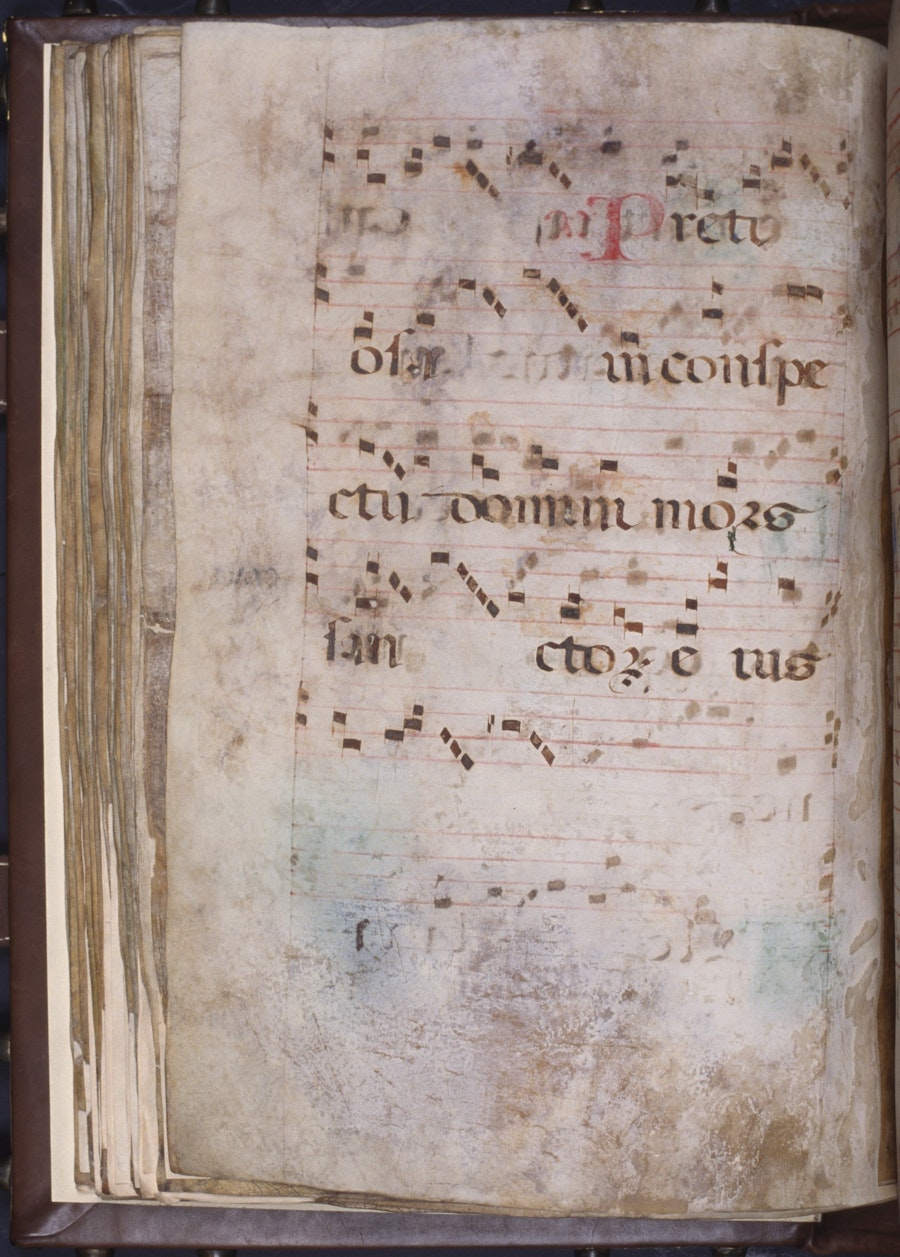 Preti
osa in conspe
ctu domini mors
san ctoꝝ e ius